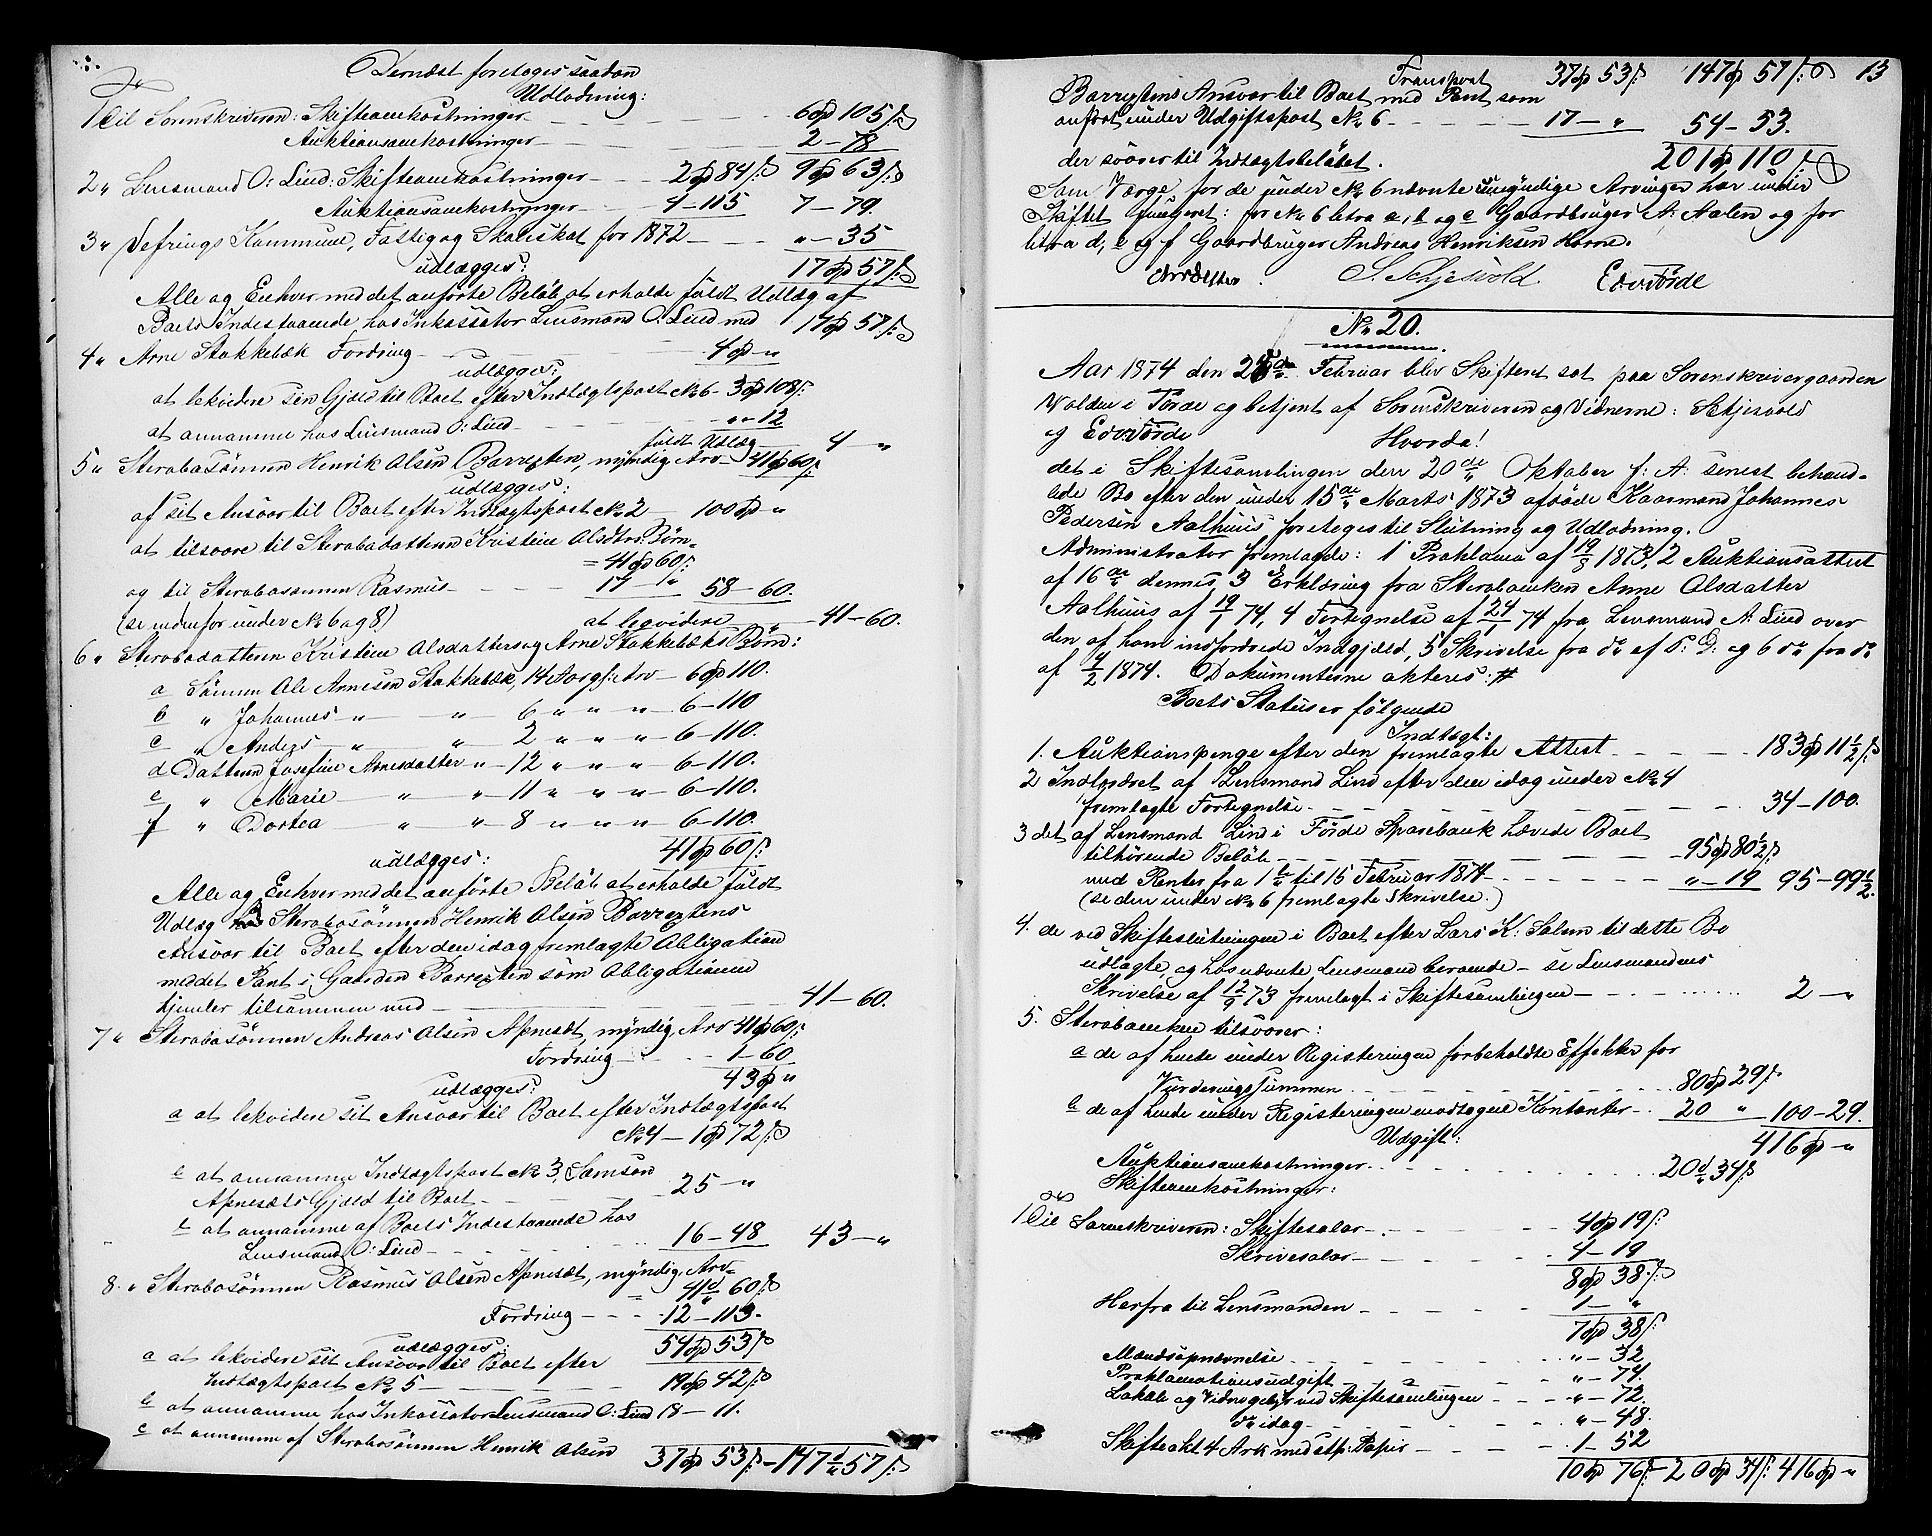 Dernæst foretoges saadan
Udlodning:
1 Til Sorenskriveren: Skifteomkostninger 6 105
Auktionsomkostninger 2-78
2 " Lensmand O: Lind: Skifteomkostninger 2 84 9 63
Auktionsomkostninger 4-115 7-79.
3 " Vefrings Kommune, Fattig og Skoleskat for 1872 "-35
udlægges: 17 57
Alle og Enhver med det anførte Beløb at erholde fuldt Udlæg af
Boets Indestaaende hos Inkassator Lensmand O: Lind med 17 57
4 " Arne Stakkebæk Fordring 4 "
udlægges:
at lekvidere sin Gjæld til Boet efter Indtægtspost No 6 3 108
at annamme hos Lensmand O: Lind "-12
fuldt Udlæg 4 "
5 " Sterbosønnen Henrik Olsen myndig, Arv 41 60
udlægges:
af sit Ansvar til Boet efter Indtægtspost No 2 100 "
at tilsvare til Sterbodatteren Kristine Olsdtrs. Børn
= 41 60
og til Sterbosønnen Rasmus 17 " 58-60.
(se nedenfor under No 6 og 8) at leqvidere 41-60.
6 " Sterbodatteren Kristine Olsdatters og Arne Stakkebæks Børn:
a Sønnen Ole Arnesen Stakkebæk, 14 Aar gl: Arv 6 110.
b " Johannes " " 6 " " " 6-110
c " Anders " " 2 " " " 6-110.
d Datteren Josefine Arnesdatter " 12 " " " 6-110.
e " Marie " " 11 " " " 6-110.
f " Dortea " " 8 " " " 6-110.
udlægges: 41 60
Alle og Enhver med det anførte Beløb at erholde fuldt
Udlæg hos Sterbosønnen Henrik Olsen
Ansvar til Boet efter den idag fremlagte Obligation
med det Pant i Gaarden som Obligationen
hjemler tilsammen med 41-60.
7 " Sterbosønnen Andreas Olsen Apnesæt, myndig, Arv 41 60
Fordring 1-60
udlægges: 43 "
a at lekvidere sit Ansvar til Boet efter Indtægtspost
No 4 1 72
b at annamme Indtægtspost No 3, Samson
Apnesæts Gjæld til Boet 25 "
c at annamme af Boets Indestaaende hos
Lensmand O: Lind 16-48 43 "
8. " Sterbosønnen Rasmus Olsen Apnesæt, myndig, Arv
= 41 60
Fordring 12-113.
udlægges: 54 53
a at lekvidere sit Ansvar til Boet efter
Indtægtspost No 5 19 42
b at annamme hos Inkassator Lensmand O: Lind 18-11.
c at annamme af Sterbosønnen Henrik Olsen
37 53 147 57
Transport 37 53 147 57 13
Ansvar til Boet med Pant som
anført under Udgiftspost No 6 17 " 54-53.
der svarer til Indtægtsbeløbet. 201 110
Som Værge for de under No 6 nævnte umyndige Arvinger har under
Skiftet fungeret: for No 6 litra a, b og c Gaardbruger A: Aalen og for
litra d, e og f Gaardbruger Andreas Henriksen Horne.
S. Schjesvold Edv Førde
No 20.
Aar 1874 den 25de Februar blev Skifteret sat paa Sorenskrivergaarden
Volden i Førde og betjent af Sorenskriveren og Vidnerne: Schjesvold
og Edv Førde Hvorda!
det i Skiftesamlingen den 20de Oktober f: A: senest behand-
lede Bo efter den under 15de Marts 1873 afdøde Kaarmand Johannes
Pedersen Aalhuus foretoges til Slutning og Udlodning.
Administrator fremlagde: 1 Proklama af 19/3 1873, 2 Auktionsattest
af 16de dennes, 3 Erklæring fra Sterboenken Anne Olsdatter
Aalhuus af 19/1 74, 4 Fortegnelse af 24/1 74 fra Lensmand A: Lind over
den af ham indfordrede Indgjæld, 5 Skrivelse fra do af S: D: og 6 do fra do
af 7/2 1874. Dokumenterne akteres: #
Boets Status er følgende
Indtægt:
1. Auktionspenge efter den fremlagte Attest 183 11½
2 Indfordret af Lensmand Lind efter den idag under No 4
fremlagte Fortegnelse 34-100.
3 det af Lensmand Lind i Førde Sparebank hævede Boet
tilhørende Beløb 95 80½
med Renter fra 1 til 15 Februar 1874 "-19 95-99½.
(se den under No 6 fremlagte Skrivelse.)
4. de ved Skifteslutningen i Boet efter Lars K: Solem til dette Bo
udlagte, og hos nævnte Lensmand beroende - se Lensmandens
Skrivelse af 12/9 73 fremlagt i Skiftesamlingen 2 "
5. Sterboenken tilsvarer:
a de af hende under Registeringen forbeholdte Effekter for
Vurderingssummen 80 29
b de af hende under Registeringen modtagne Kontanter 20 " 100-29.
Udgift: 416 "
Auktionsomkostninger 20 34
Skifteomkostninger:
1 Til Sorenskriveren: Skiftesalar 4 19
Skrivesalar 4-19
8 38
Herfra til Lensmanden 1 "
7 38
Mandsopnævnelse "-32
Proklamationsudgift "-74.
Lokale og Vidnegebyr ved Skiftesamlingen "-72.
do idag "-48.
Skifteakt 4 Ark med stp: Papir 1-52
10 76 20 34 416 "